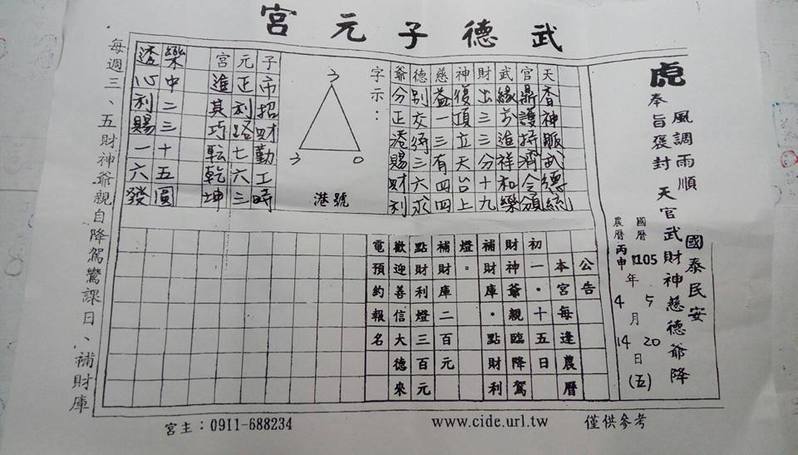 武德子元宮
虎
風調雨順
國泰民安
奉旨褒封 天官武財神慈德爺降
國曆105年5月20日(五)
農曆丙申 4月14日
天香神脈武德統
官鼎護持濟令頒
武緣 進祥和樂
財出三三分十九
神復頂立天台上
慈益一三有四四
德別交 三六求
爺分正港賜財利
字示:
3
3
0
港號
子市招財勤工時
元正利路七六三
宮進其巧轉乾坤
樂中二三十五圓
透心利賜一六發
公告
本宮每逢農曆
初一.十五日
財神爺親臨降駕
補財庫.點財利
燈.
補財庫二百元
點財利燈三百元
歡迎善信大德來
電預約報名
每週三、五財神爺親自降駕鸞課日、補財庫
宮主:0911-688234
www.cide.url.tw
僅供參考